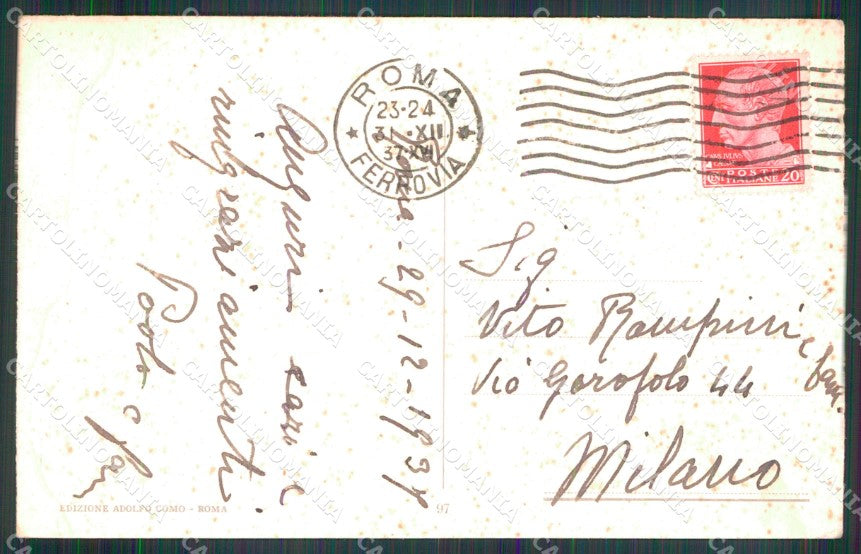 ROMA
23-24
31·XII
37·XVI
FERROVIA
POSTE
ITALIANE 20
Roma - 29-12-1937
Auguri cari e
ringraziamenti
Paolo e
Sig
Vito Rampini e fam.
Via Garofolo 44
Milano
EDIZIONE ADOLFO COMO - ROMA
97
CARTOLINOMANIA